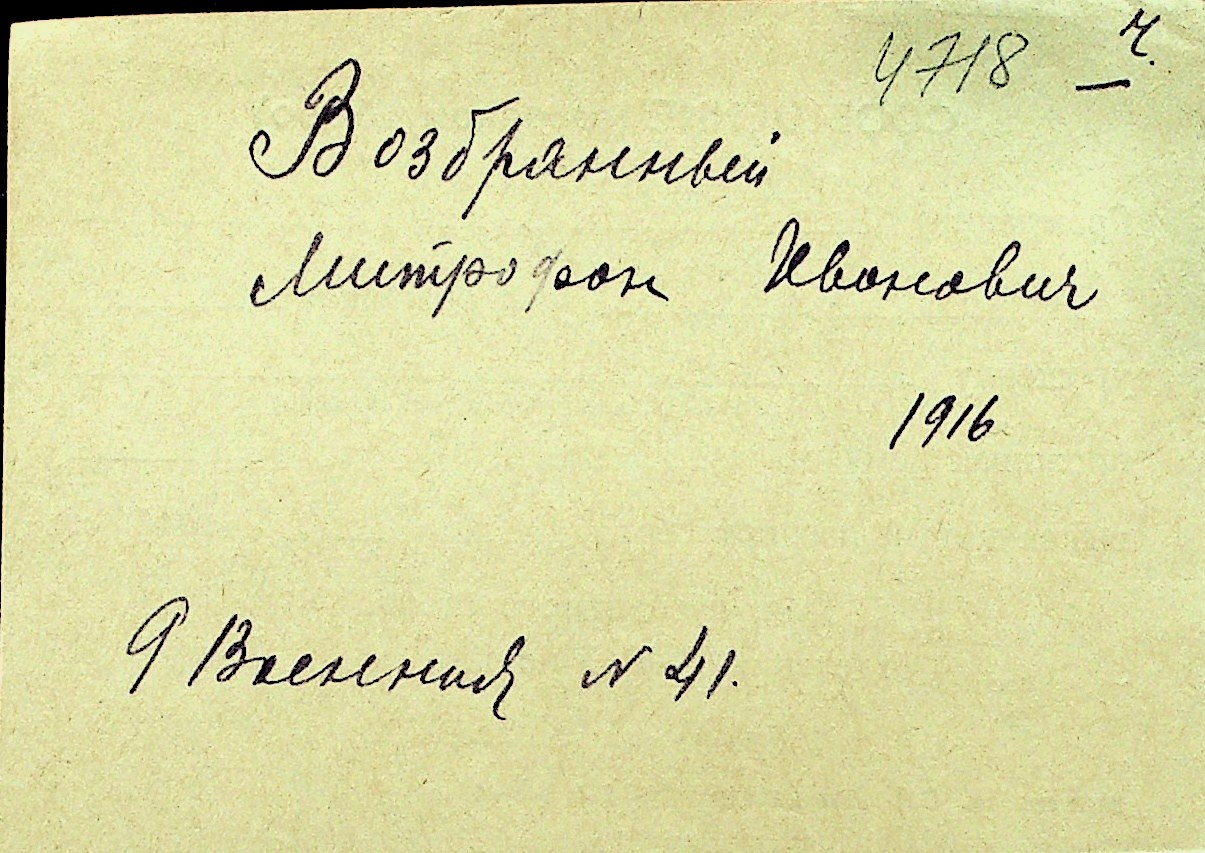 4718 ч.
Возбранный
Митрофон Иванович
1916
9 Военная N 41.